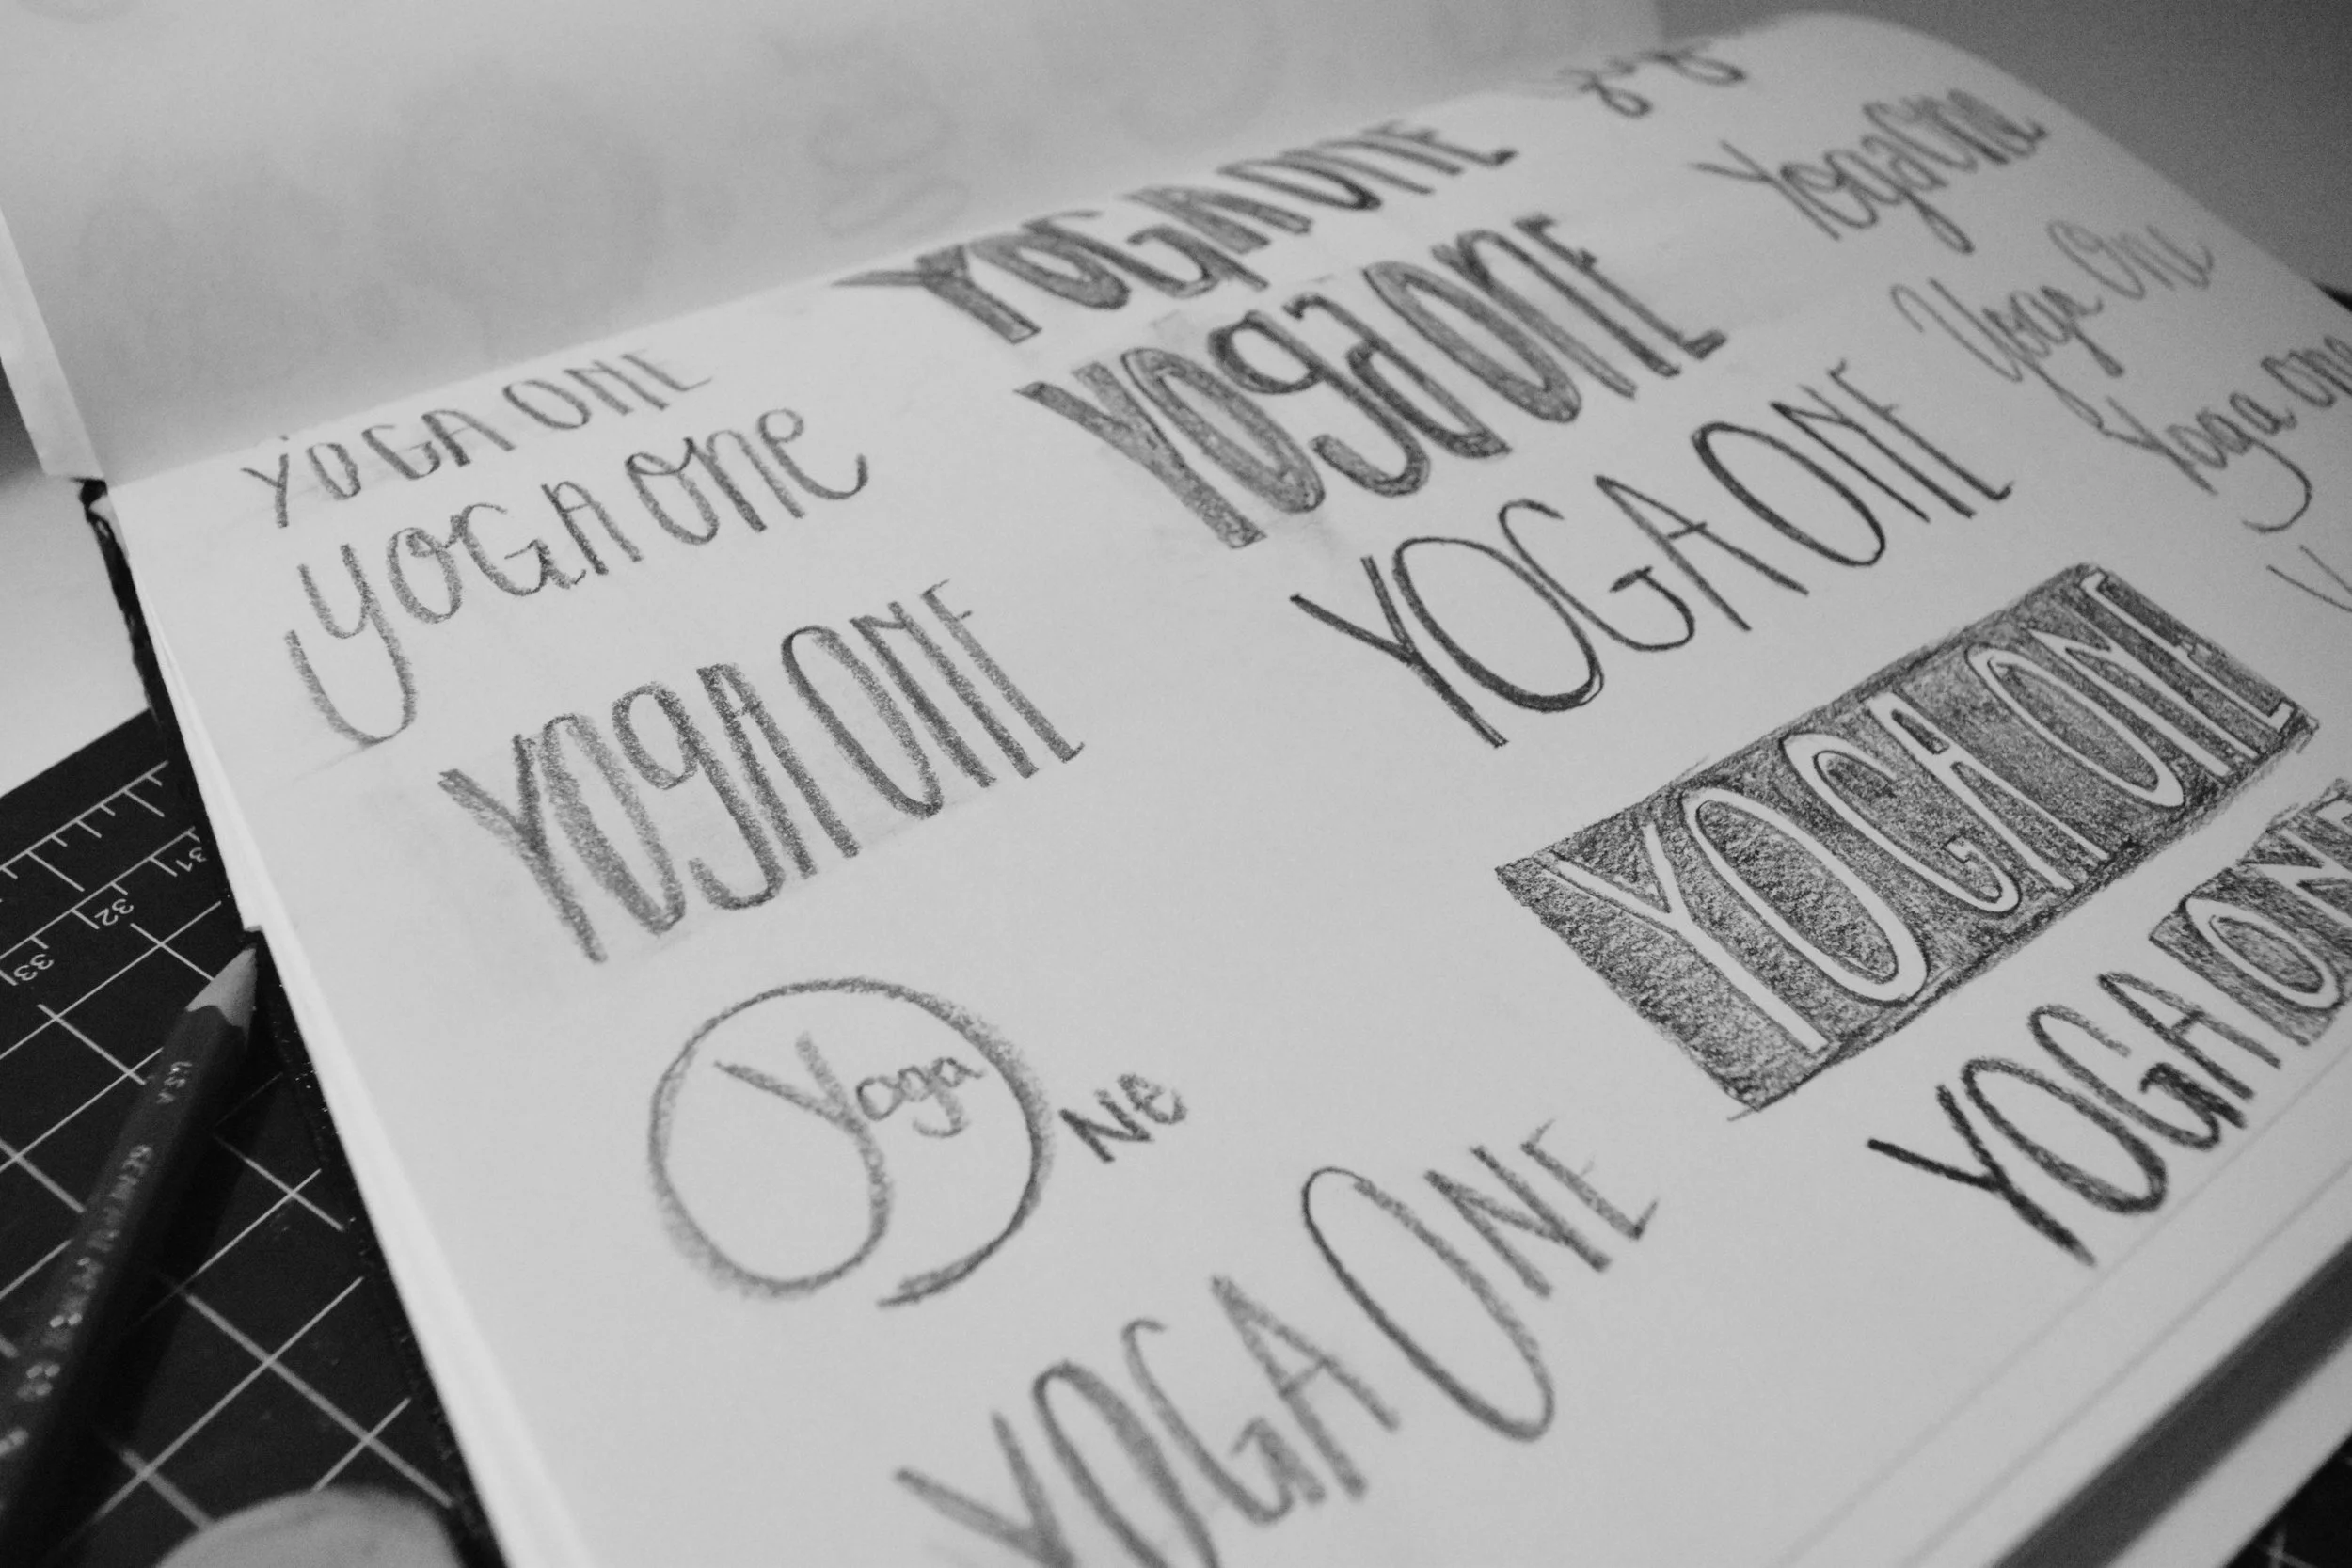 YOGA ONE
YOGA one
YOgA ONE
Yoga
Ne
YOGA ONE
YOGA ONE
YOgaONE
YOGA ONE
YOGA ONE
YOGA ONE
YogaOne
Yoga One
Yoga one
31
32
33
U.S.A